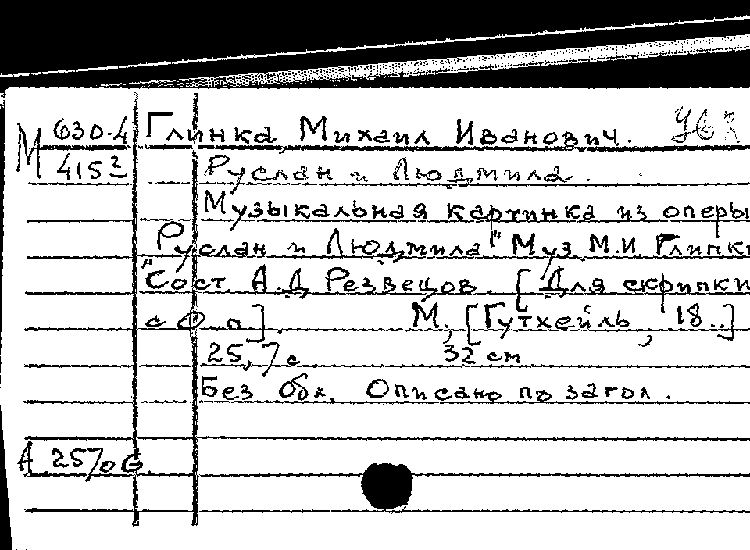 М 630-4 Глинка, Михаил Иванович.
415² Руслан и Людмила.
Музыкальная картинка из оперы
"Руслан и Людмила" Муз. М.И. Глинк
Сост. А.Д. Резвецов. [Для скрипки
с ф.-п.]. М., [Гутхейль, 18..]
25, 7 с. 32 см
Без обл. Описано по загол.
А 25/06